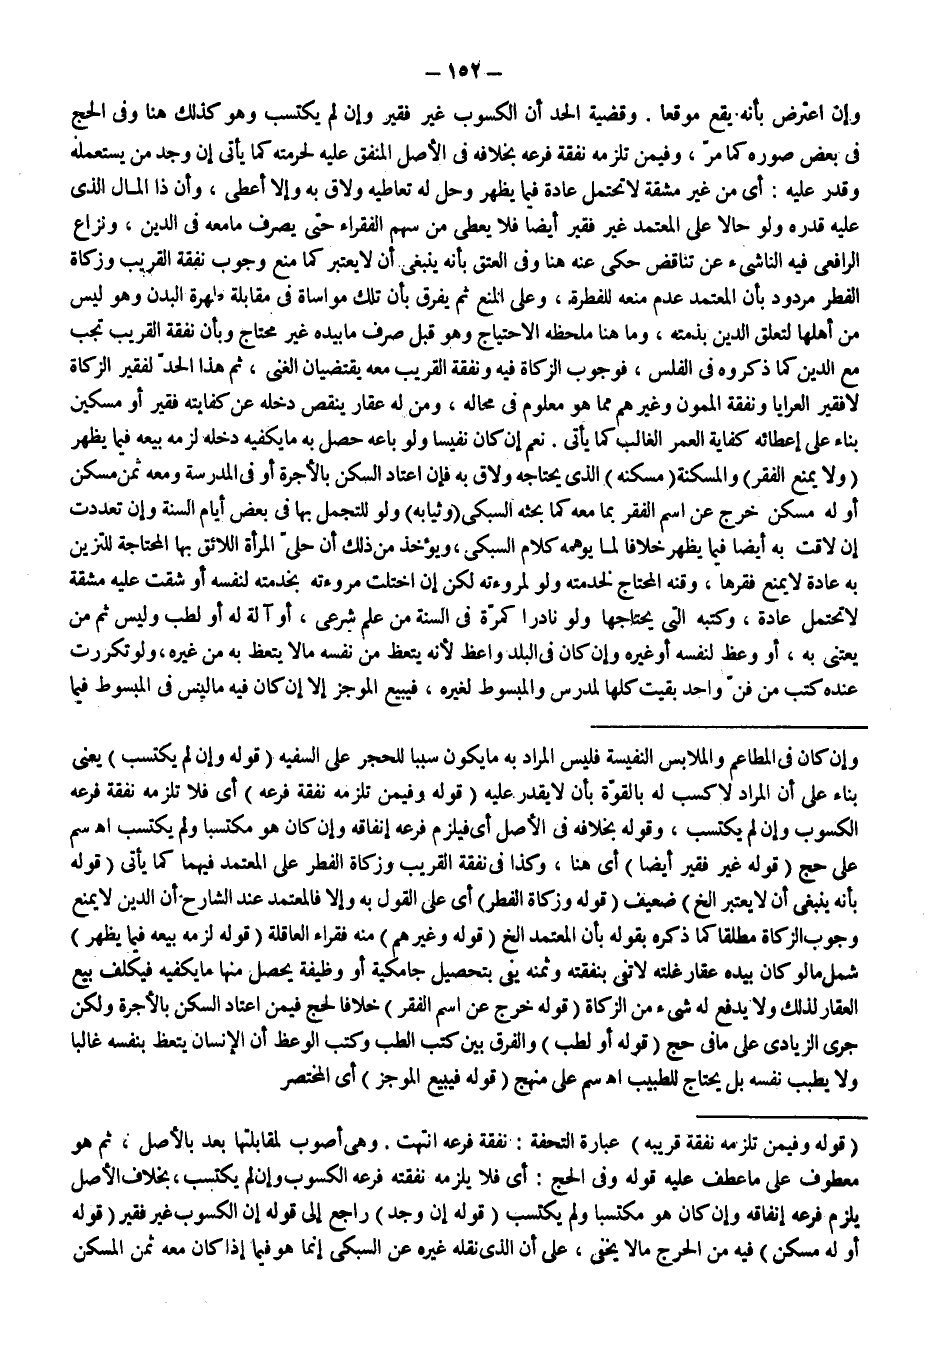 – ١٥٢ –
وإن اعترض بأنه يقع موقعا . وقضية الحد أن الكسوب غير فقير وإن لم يكتسب وهو كذلك هنا وفى الحج
فى بعض صوره كما مرّ ، وفيمن تلزمه نفقة فرعه بخلافه فى الأصل المنفق عليه لحرمته كما يأتى إن وجد من يستعمله
وقدر عليه : أى من غير مشقة لاتحتمل عادة فيما يظهر وحل له تعاطيه ولاق به وإلا أعطى ، وأن ذا المـال الذى
عليه قدره ولو حالا على المعتمد غير فقير أيضا فلا يعطى من سهم الفقراء حتى يصرف مامعه فى الدين ، ونزاع
الرافعى فيه الناشىء عن تناقض حكى عنه هنا وفى العتق بأنه ينبغى أن لايعتبر كما منع وجوب نفقة القريب وزكاة
الفطر مردود بأن المعتمد عدم منعه للفطرة ، وعلى المنع ثم يفرق بأن تلك مواساة فى مقابلة طهرة البدن وهو ليس
من أهلها لتعلق الدين بذمته ، وما هنا ملحظه الاحتياج وهو قبل صرف مابيده غير محتاج وبأن نفقة القريب تجب
مع الدين كما ذكروه فى الفلس ، فوجوب الزكاة فيه ونفقة القريب معه يقتضيان الغنى ، ثم هذا الحدّ لفقير الزكاة
لافقير العرايا ونفقة الممون وغيرهم مما هو معلوم فى محاله ، ومن له عقار ينقص دخله عن كفايته فقير أو مسكين
بناء على إعطائه كفاية العمر الغالب كما يأتى . نعم إن كان نفيسا ولو باعه حصل به مايكفيه دخله لزمه بيعه فيما يظهر
( ولا يمنع الفقر) والمسكنة( مسكنه ) الذى يحتاجه ولاق به فإن اعتاد السكن بالأجرة أو فى المدرسة ومعه ثمن مسكن
أو له مسكن خرج عن اسم الفقر بما معه كما بحثه السبكى(وثيابه) ولو للتجمل بها فى بعض أيام السنة وإن تعددت
إن لاقت به أيضا فيما يظهر خلافا لمـا يوهمه كلام السبكى ، ويؤخذ من ذلك أن حلىّ المرأة اللائق بها المحتاجة للتزين
به عادة لايمنع فقرها ، وقنه المحتاج لخدمته ولو لمروءته لكن إن اختلت مروءته بخدمته لنفسه أو شقت عليه مشقة
لاتحتمل عادة ، وكتبه التى يحتاجها ولو نادرا كمرّة فى السنة من علم شرعى ، أو آلة له أو لطب وليس ثم من
يعتنى به ، أو وعظ لنفسه أو غيره وإن كان فى البلد واعظ لأنه يتعظ من نفسه مالا يتعظ به من غيره ، ولو تكررت
عنده كتب من فنّ واحد بقيت كلها لمدرس والمبسوط لغيره ، فيبيع الموجز إلا إن كان فيه ماليس فى المبسوط فيما
وإن كان فى المطاعم والملابس النفيسة فليس المراد به مايكون سببا للحجر على السفيه ( قوله وإن لم يكتسب ) يعنى
بناء على أن المراد لاكسب له بالقوّة بأن لايقدر عليه ( قوله وفيمن تلزمه نفقة فرعه ) أى فلا تلزمه نفقة فرعه
الكسوب وإن لم يكتسب ، وقوله بخلافه فى الأصل أى فيلزم فرعه إنفاقه وإن كان هو مكتسبا ولم يكتسب اهـ سم
على حج ( قوله غير فقير أيضا ) أى هنا ، وكذا فى نفقة القريب وزكاة الفطر على المعتمد فيهما كما يأتى ( قوله
بأنه ينبغى أن لايعتبر الخ ) ضعيف ( قوله وزكاة الفطر) أى على القول به وإلا فالمعتمد عند الشارح أن الدين لايمنع
وجوب الزكاة مطلقا كما ذكره بقوله بأن المعتمد الخ ( قوله وغيرهم ) منه فقراء العاقلة ( قوله لزمه بيعه فيما يظهر )
شمل مالو كان بيده عقار غلته لاتفى بنفقته وثمنه يفى بتحصيل جامكية أو وظيفة يحصل منها مايكفيه فيكلف بيع
العقار لذلك ولا يدفع له شىء من الزكاة ( قوله خرج عن اسم الفقر ) خلافا لحج فيمن اعتاد السكن بالأجرة ولكن
جرى الزيادى على مافى حج ( قوله أو لطب ) والفرق بين كتب الطب وكتب الوعظ أن الإنسان يتعظ بنفسه غالبا
ولا يطبب نفسه بل يحتاج للطبيب اهـ سم على منهج ( قوله فيبيع الموجز ) أى المختصر
( قوله وفيمن تلزمه نفقة قريبه ) عبارة التحفة : نفقة فرعه انتهت . وهى أصوب لمقابلتها بعد بالأصل ، ثم هو
معطوف على ماعطف عليه قوله وفى الحج : أى فلا يلزمه نفقته فرعه الكسوب وإن لم يكتسب ، بخلاف الأصل
يلزم فرعه إنفاقه وإن كان هو مكتسبا ولم يكتسب ( قوله إن وجد ) راجع إلى قوله إن الكسوب غير فقير ( قوله
أو له مسكن ) فيه من الحرج مالا يخفى ، على أن الذى نقله غيره عن السبكى إنما هو فيما إذا كان معه ثمن المسكن